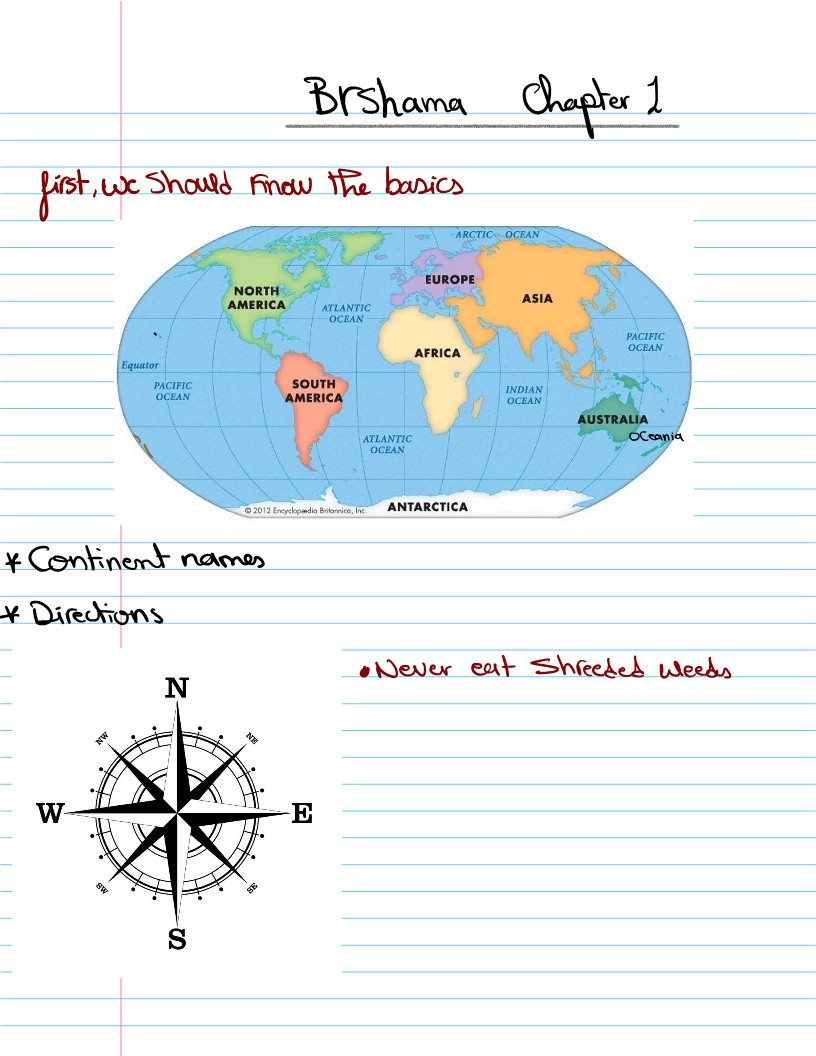 Brshama Chapter 1
first, we should know the basics
ARCTIC OCEAN
NORTH AMERICA
EUROPE
ASIA
ATLANTIC OCEAN
PACIFIC OCEAN
AFRICA
Equator
PACIFIC OCEAN
SOUTH AMERICA
INDIAN OCEAN
AUSTRALIA
Oceania
ATLANTIC OCEAN
© 2012 Encyclopædia Britannica, Inc.
ANTARCTICA
* Continent names
* Directions
• Never eat Shreeded weeds
N
NW NE
W E
SW SE
S